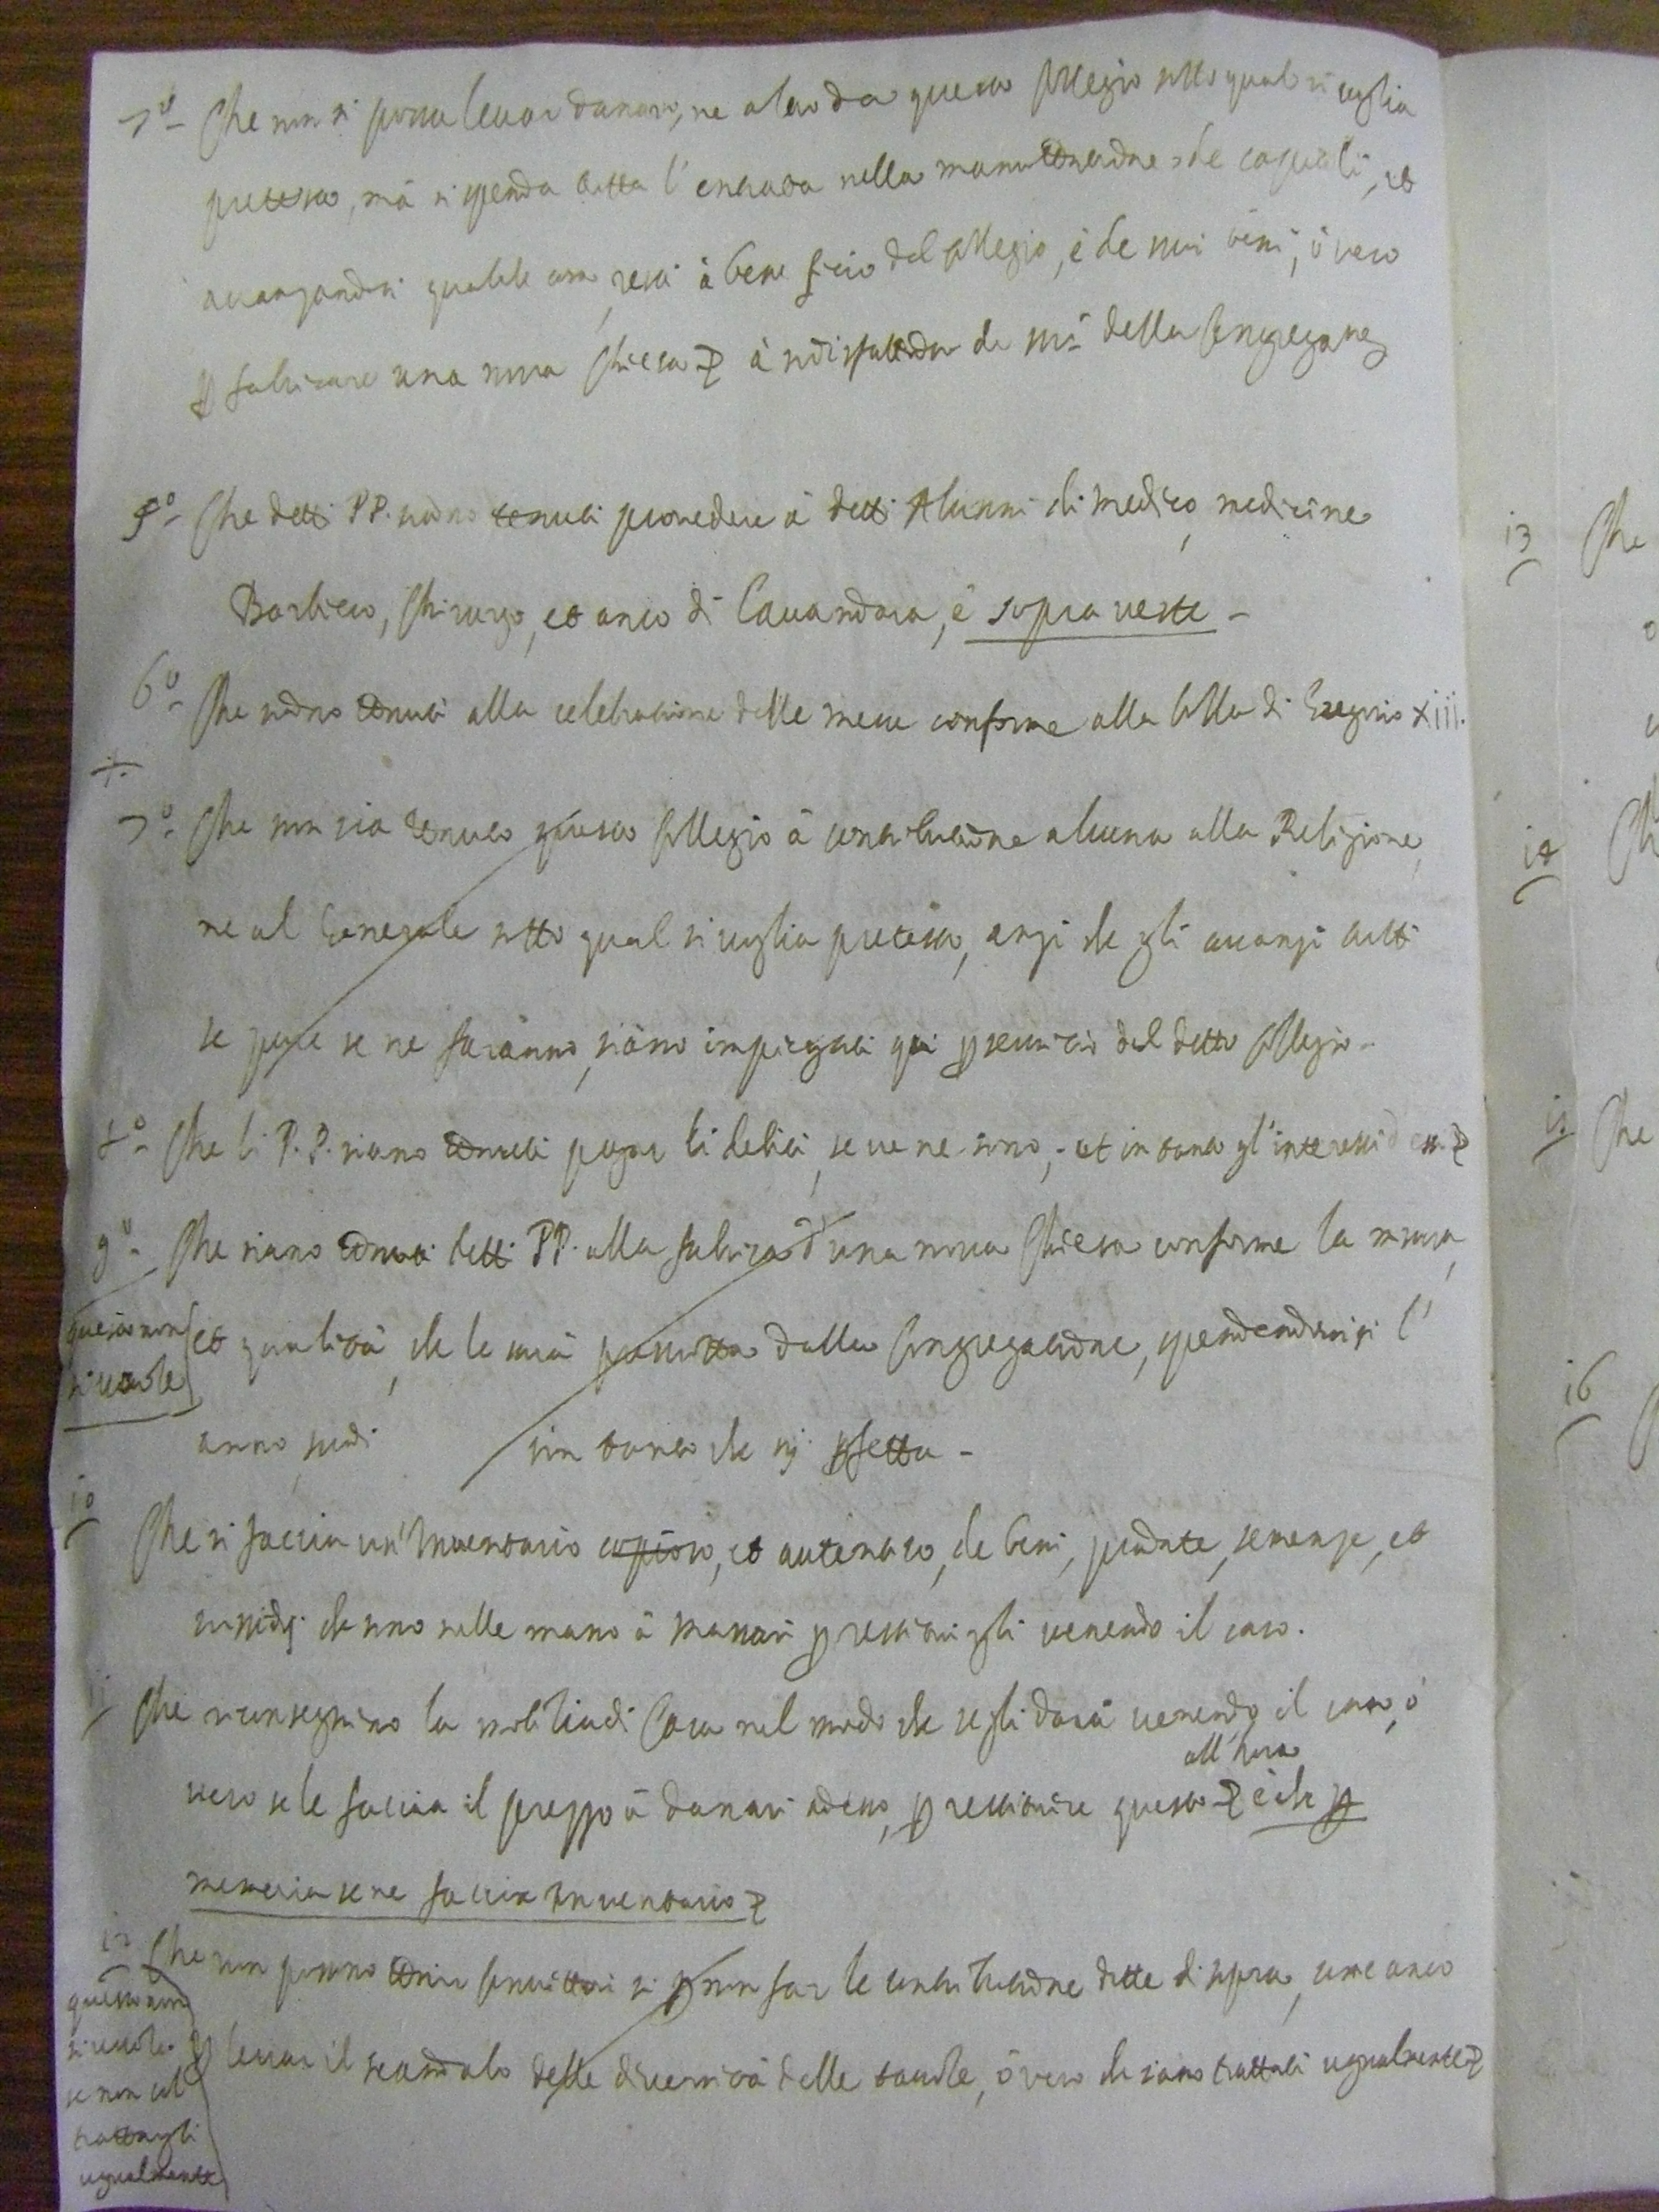 Che non si possa levar danaro, ne altro da questo Collegio sotto qual si voglia
pretesto, mà si spenda tutta l'entrata nella manutentione de capitoli, et
avanzandosi qualche cosa, resti à beneficio del Collegio, è de suoi beni, ò vero
p fabricare una nova Chiesa à sodisfatione de ssri della Congregane
5º Che detti PP. siano tenuti provedere à detti Alunni di medico, medicine
Barbiero, Chirurgo, et anco di Lavandara, è sopra veste -
6º Che siano tenuti alla celebratione delle messe conforme alla bolla di Gregorio xiii.
+
7º Che non sia tenuto questo Collegio à contributione alcuna alla Religione,
ne al Generale sotto qual si voglia pretesto, anzi che gli avanzi tutti
se pure se ne faranno, siano impiegati qui p servitio del detto Collegio -
8º Che li P.P. siano tenuti pagar li debiti, se ve ne sono, et in tanto gl'interessi
9º Che siano tenuti detti PP. alla fabrica d'una nova Chiesa conforme la misura,
questo non
si vuole
et qualità, che le sarà prescritta dalla Congregatione, spendendovisi l'
anno, scudi sin tanto che sij pfetta -
10 Che si faccia un'Inventario copioso, et autentico, de beni, piante, semenze, et
che sono nelle mano à massari p restituirgli venendo il caso.
11 Che riconsegnino la mobilia di Casa nel modo che segli darà venendo il caso, ò
all'hora
vero se le faccia il prezzo à danari adesso, p restituire questo è che p
memoria se ne faccia Inventario
12 Che non possino tenir Convittori si p non far le contributione dette di sopra, come anco
p levar il scandalo delle diversità delle tavole, ò vero che siano trattati ugualmente
questo non
si vuole
se non col
trattargli
ugualmente
13 Che
14 Ch
15 Che
16